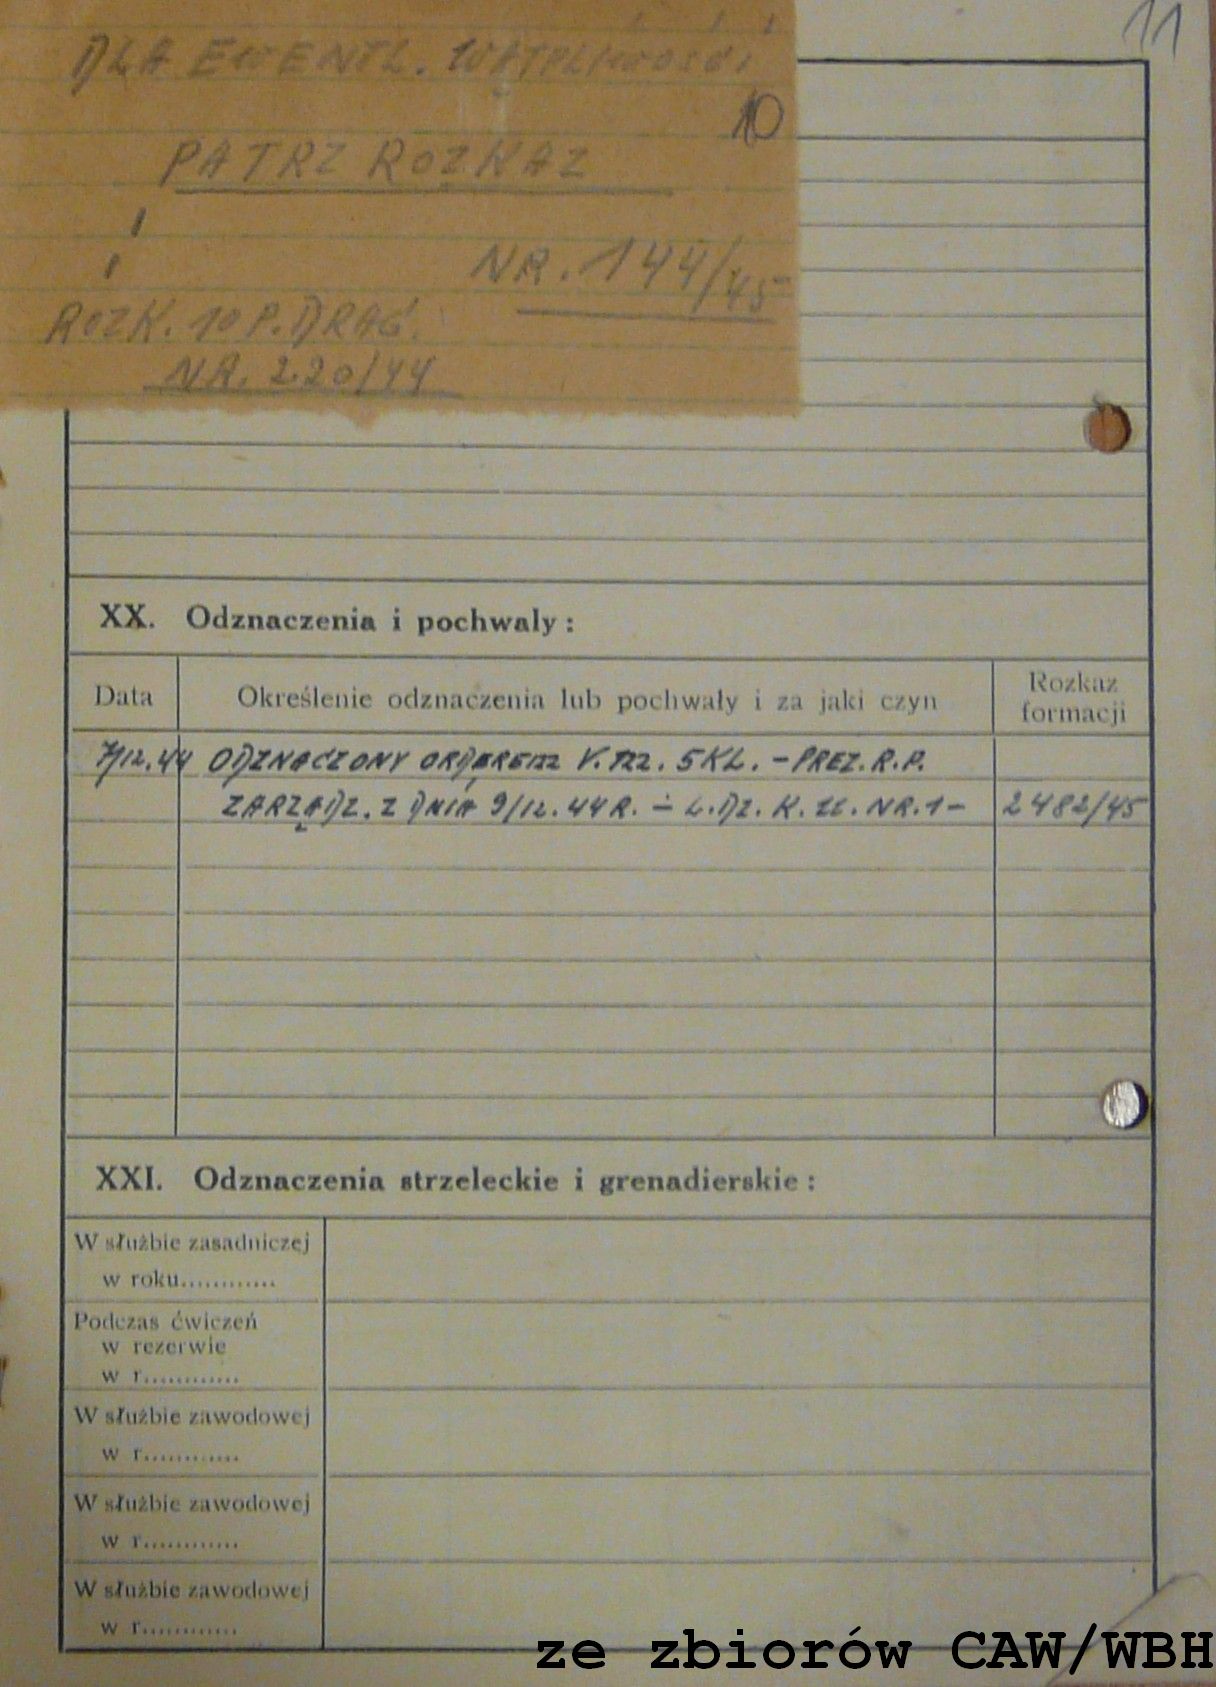 11
DLA EWENTL. WĄTPLIWOŚCI
10
PATRZ ROZKAZ
NR. 144/45
ROZK. 10 P. DRAG.
NR. 220/44
XX. Odznaczenia i pochwały:
Data
Określenie odznaczenia lub pochwały i za jaki czyn
Rozkaz formacji
7/12.44 ODZNACZONY ORDEREM V.M. 5 KL. - PREZ. R.P.
ZARZĄDZ. Z DNIA 9/12.44 R. - L.DZ. K. NR. 1- 2482/45
XXI. Odznaczenia strzeleckie i grenadierskie:
W służbie zasadniczej
w roku............
Podczas ćwiczeń
w rezerwie
w r............
W służbie zawodowej
w r............
W służbie zawodowej
w r............
W służbie zawodowej
w r............
ze zbiorów CAW/WBH